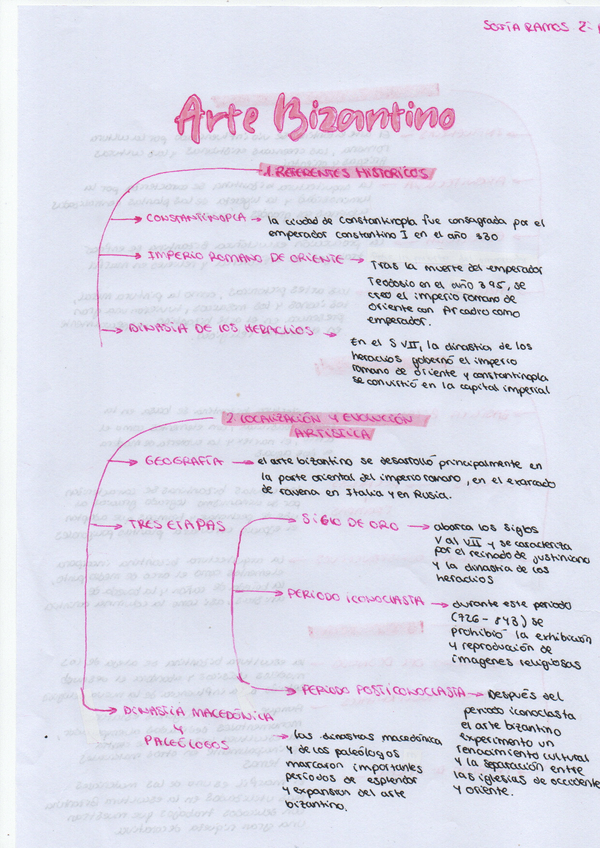 SOFÍA RAMOS 2º
Arte Bizantino
1. REFERENTES HISTORICOS
CONSTANTINOPLA → la ciudad de constantinopla fue consagrada por el
emperador constantino I en el año 330
IMPERIO ROMANO DE ORIENTE → Tras la muerte del emperador
Teodosio en el año 395, se
creó el imperio romano de
oriente con Arcadio como
emperador.
DINASTIA DE LOS HERACLIOS →
En el S VII, la dinastia de los
heraclios gobernó el imperio
romano de oriente y constantinopla
se convirtió en la capital imperial
2. LOCALIZACIÓN Y EVOLUCIÓN
ARTISTICA
GEOGRAFÍA → el arte bizantino se desarrolló principalmente en
la parte oriental del imperio romano, en el exarcado
de ravena en Italia y en Rusia.
TRES ETAPAS
SIGLO DE ORO → abarca los siglos
V al VII y se caracteriza
por el reinado de justiniano
y la dinastía de los
heraclios
PERIODO ICONOCLASTA → durante este periodo
(726 - 843) se
prohibió la exhibición
y reproducción de
imagenes religiosas
PERIODO POSTICONOCLASTA → Después del
periodo iconoclasta
el arte bizantino
experimento un
renacimiento cultural
y la separación entre
las iglesias de occidente
y oriente.
DINASTÍA MACEDÓNICA
Y
PALEÓLOGOS
→ las dinastias macedónica
y de los paleólogos
marcaron importantes
periodos de esplendor
y expansion del arte
bizantino.